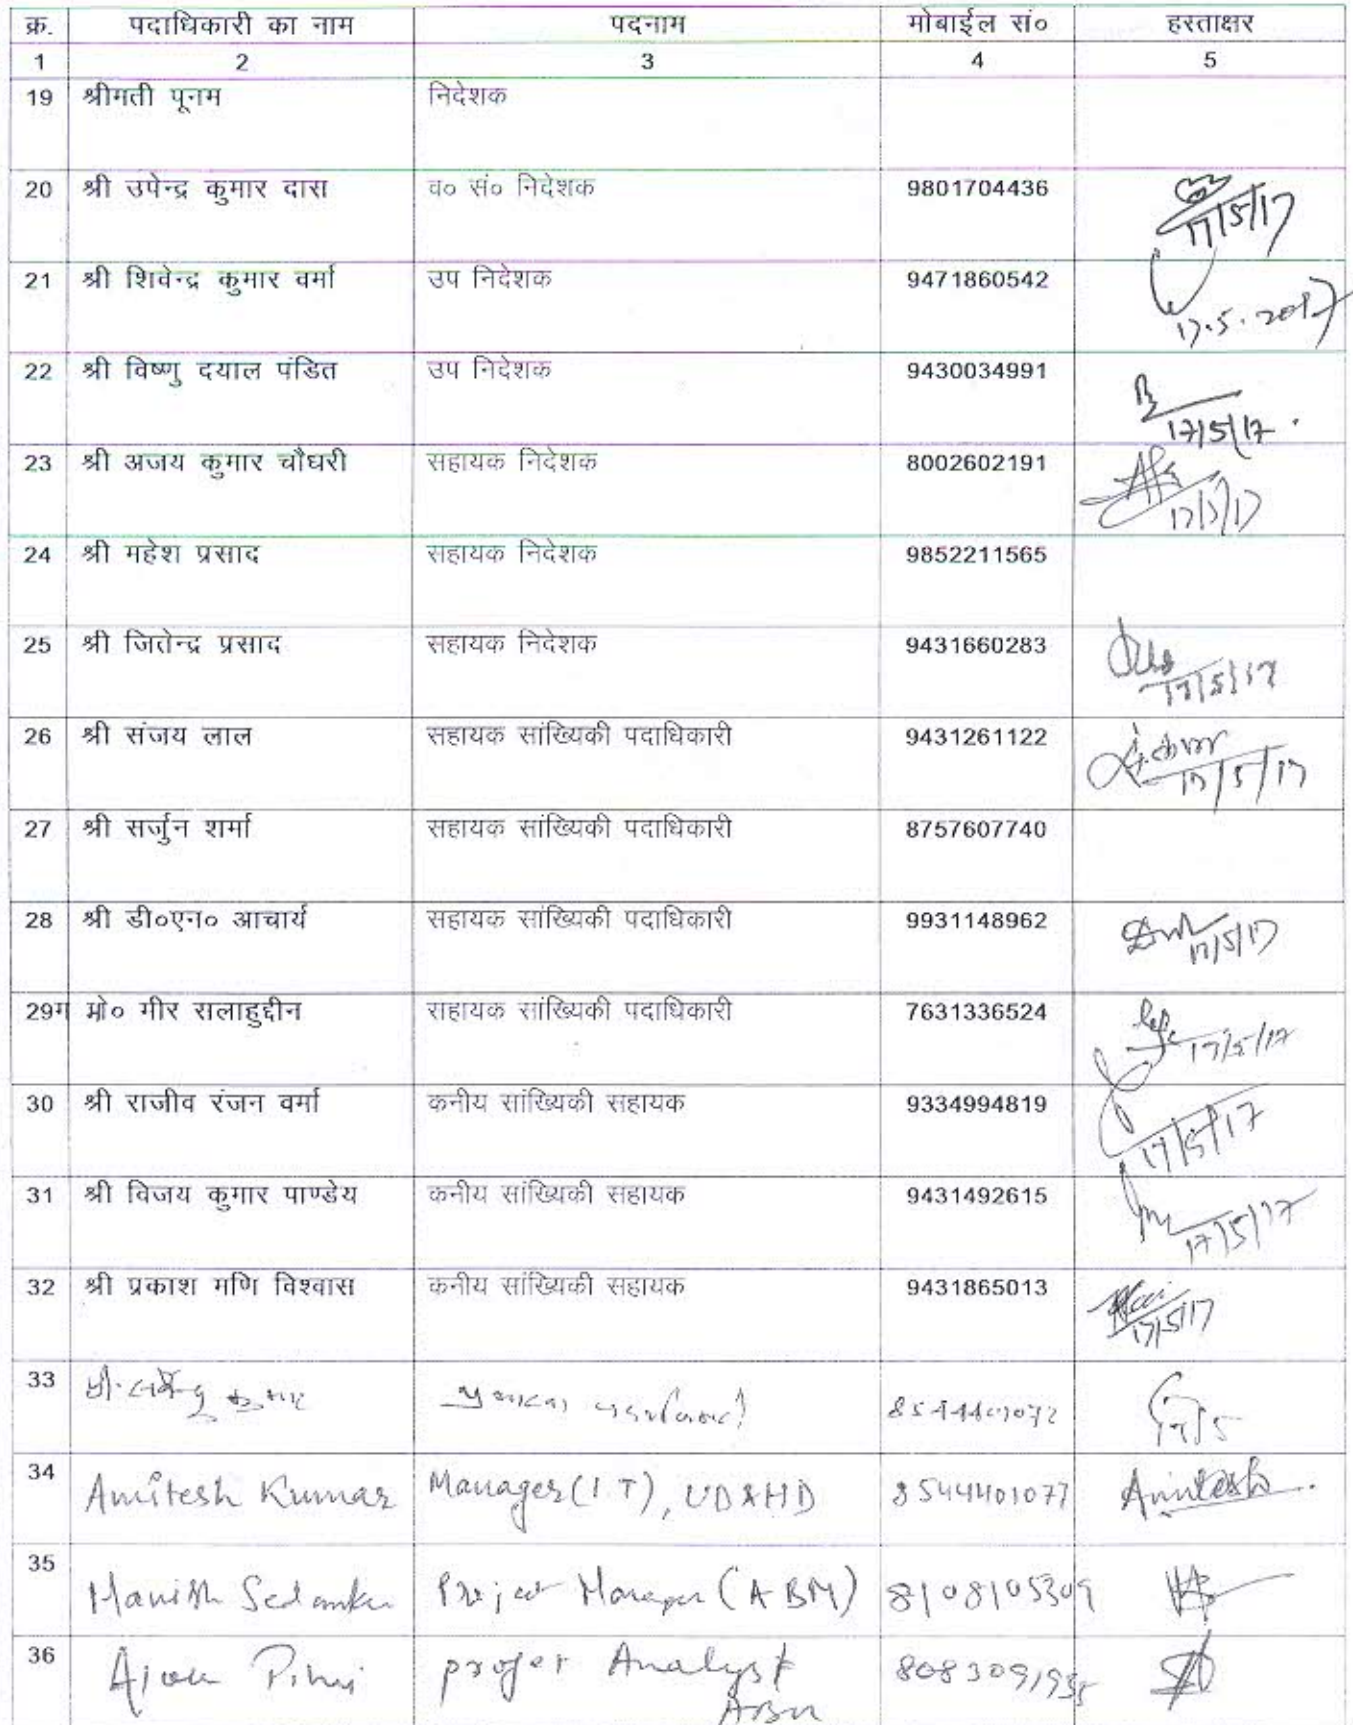 क्र. पदाधिकारी का नाम पदनाम मोबाईल सं० हस्ताक्षर
1 2 3 4 5
19 श्रीमती पूनम निदेशक
20 श्री उपेन्द्र कुमार दास व० सं० निदेशक 9801704436 17/5/17
21 श्री शिवेन्द्र कुमार वर्मा उप निदेशक 9471860542 17.5.2017
22 श्री विष्णु दयाल पंडित उप निदेशक 9430034991 17/5/17
23 श्री अजय कुमार चौधरी सहायक निदेशक 8002602191 17/5/17
24 श्री महेश प्रसाद सहायक निदेशक 9852211565
25 श्री जितेन्द्र प्रसाद सहायक निदेशक 9431660283 17/5/17
26 श्री संजय लाल सहायक सांख्यिकी पदाधिकारी 9431261122 17/5/17
27 श्री सर्जुन शर्मा सहायक सांख्यिकी पदाधिकारी 8757607740
28 श्री डी०एन० आचार्य सहायक सांख्यिकी पदाधिकारी 9931148962 17/5/17
29म मो० मीर सलाहुद्दीन सहायक सांख्यिकी पदाधिकारी 7631336524 17/5/17
30 श्री राजीव रंजन वर्मा कनीय सांख्यिकी सहायक 9334994819 17/5/17
31 श्री विजय कुमार पाण्डेय कनीय सांख्यिकी सहायक 9431492615 17/5/17
32 श्री प्रकाश मणि विश्वास कनीय सांख्यिकी सहायक 9431865013 17/5/17
33 कुमार 17/5
34 Amitesh Kumar Manager (I.T), UD&HD 8544401077 Amitesh
35 Manish Project Manager (ABM) 8108105309
36 projet Analyst 8083091935
ABM